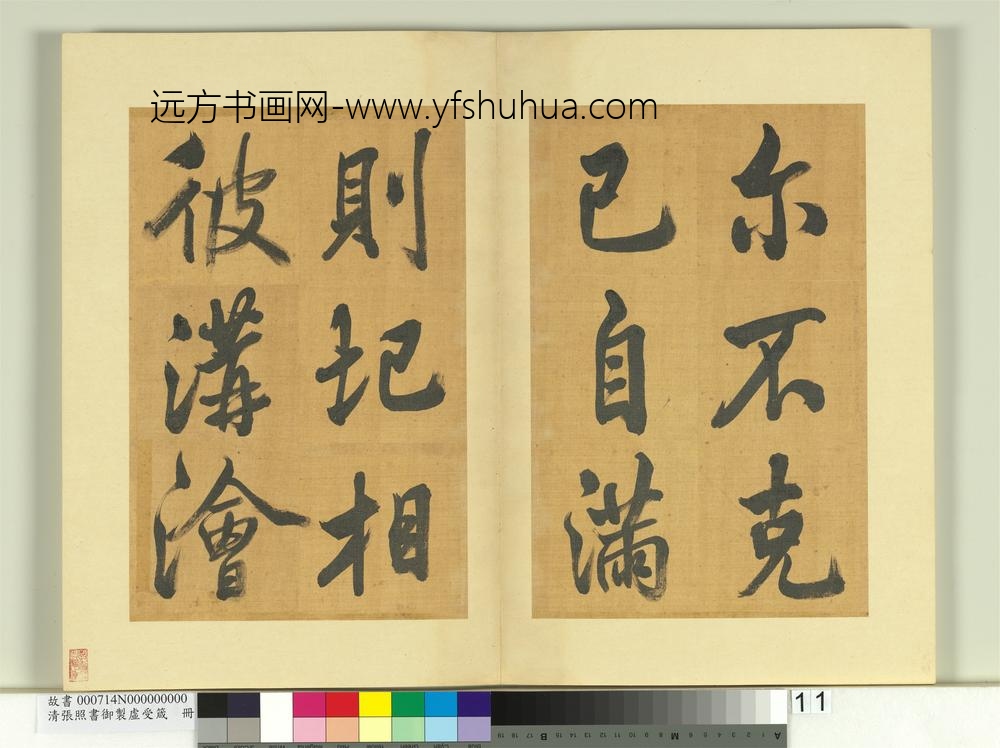 远方书画网-www.yfshuhua.com
尔不克
已自滿
則圯相
彼溝澮
故書 000714N000000000
清張照書御製虛受箴 冊
11